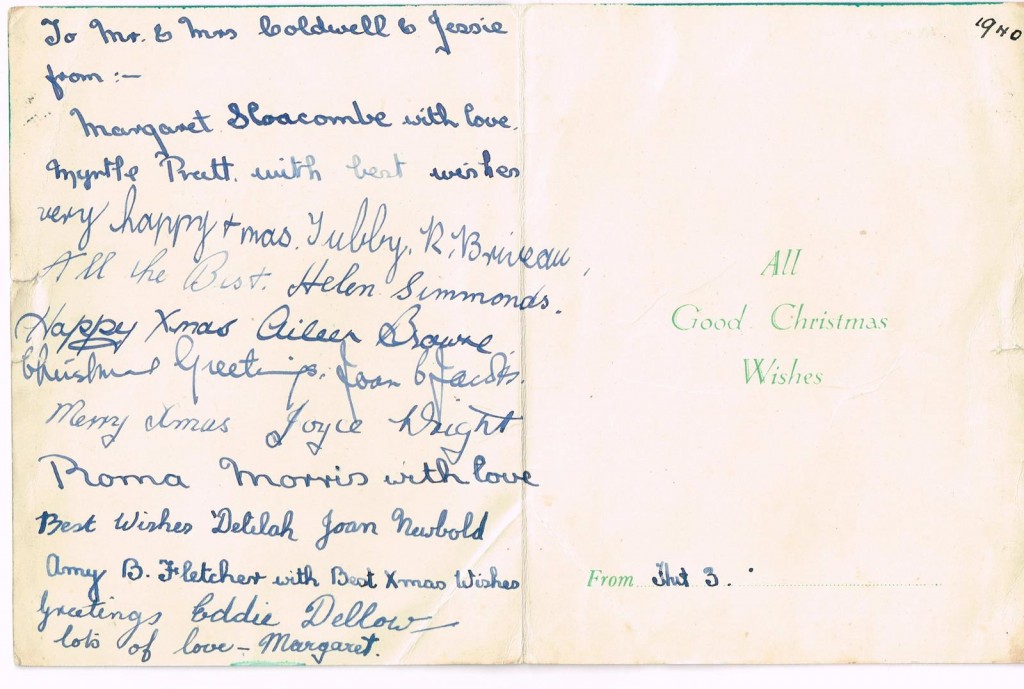 To Mr. & Mrs Coldwell & Jessie
from :-
Margaret Sloacombe with love.
Myrtle Pratt. with best wishes
very happy xmas. Tubby. R. Briveau.
All the Best. Helen Simmonds.
Happy Xmas Aileen Browne
Christmas Greetings. Joan Jacobs.
Merry Xmas Joyce Wright
Roma Morris with love
Best Wishes 'Delilah Joan Newbold
Amy B. Fletcher with Best Xmas Wishes
Greetings Eddie Dellow
lots of love - Margaret.
1940
All
Good Christmas
Wishes
From Hut 3.